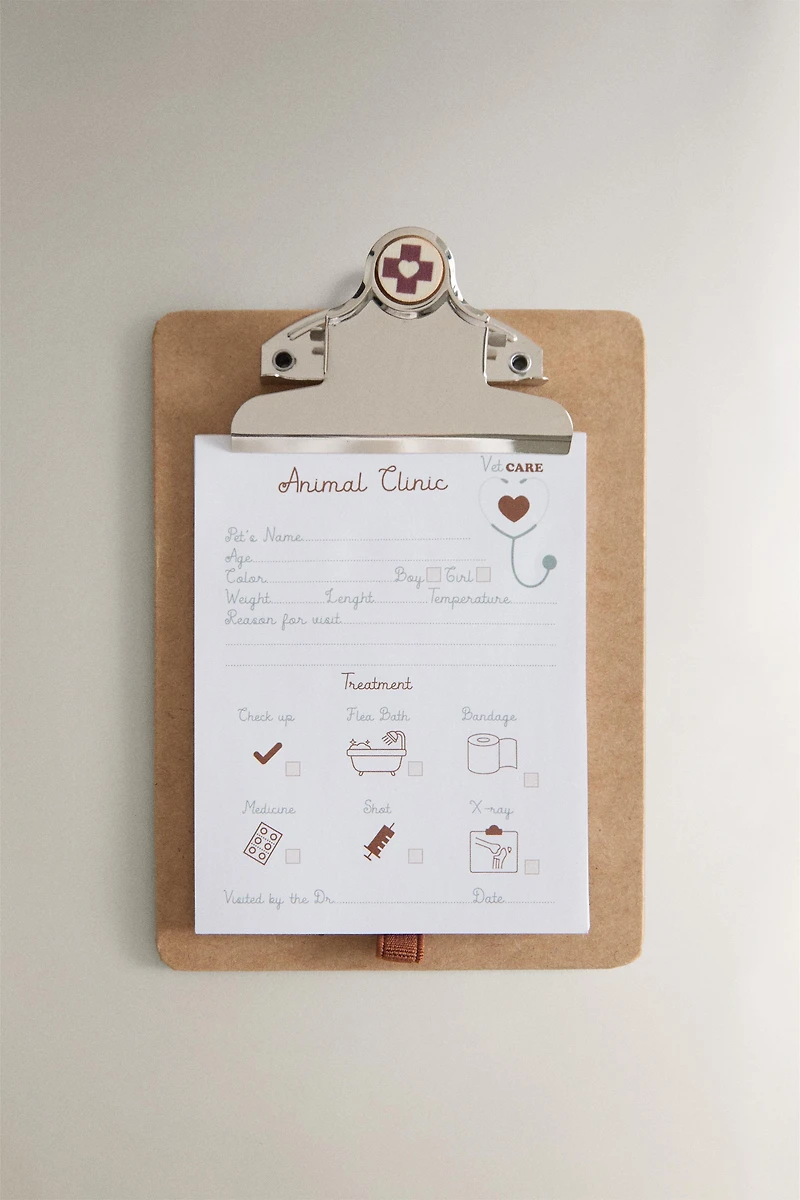 Vet CARE
Animal Clinic
Pet's Name
Age
Color Boy Girl
Weight Lenght Temperature
Reason for visit
Treatment
Check up Flea Bath Bandage
Medicine Shot X-ray
Visited by the Dr. Date